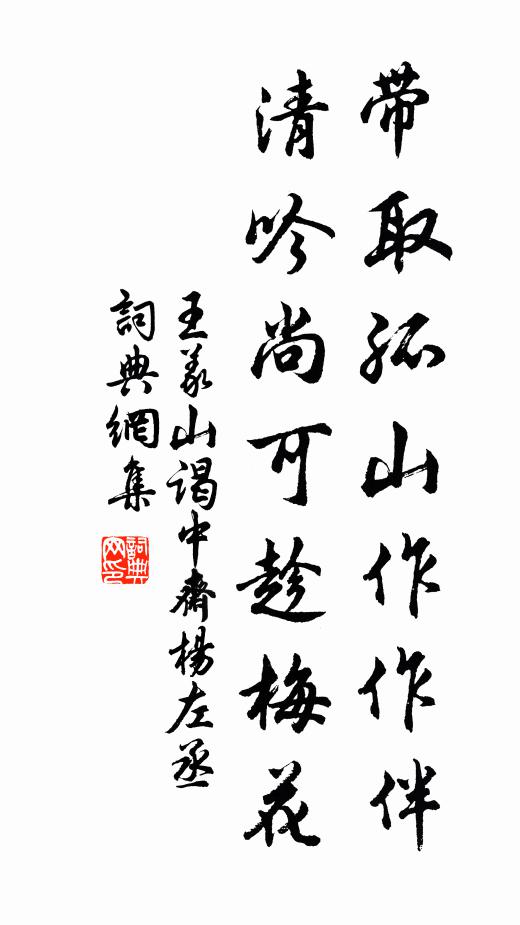 帶取孤山作作伴
清吟尚可趁梅花
王義山謁中齋楊左丞
詞典網集
詞典
网印